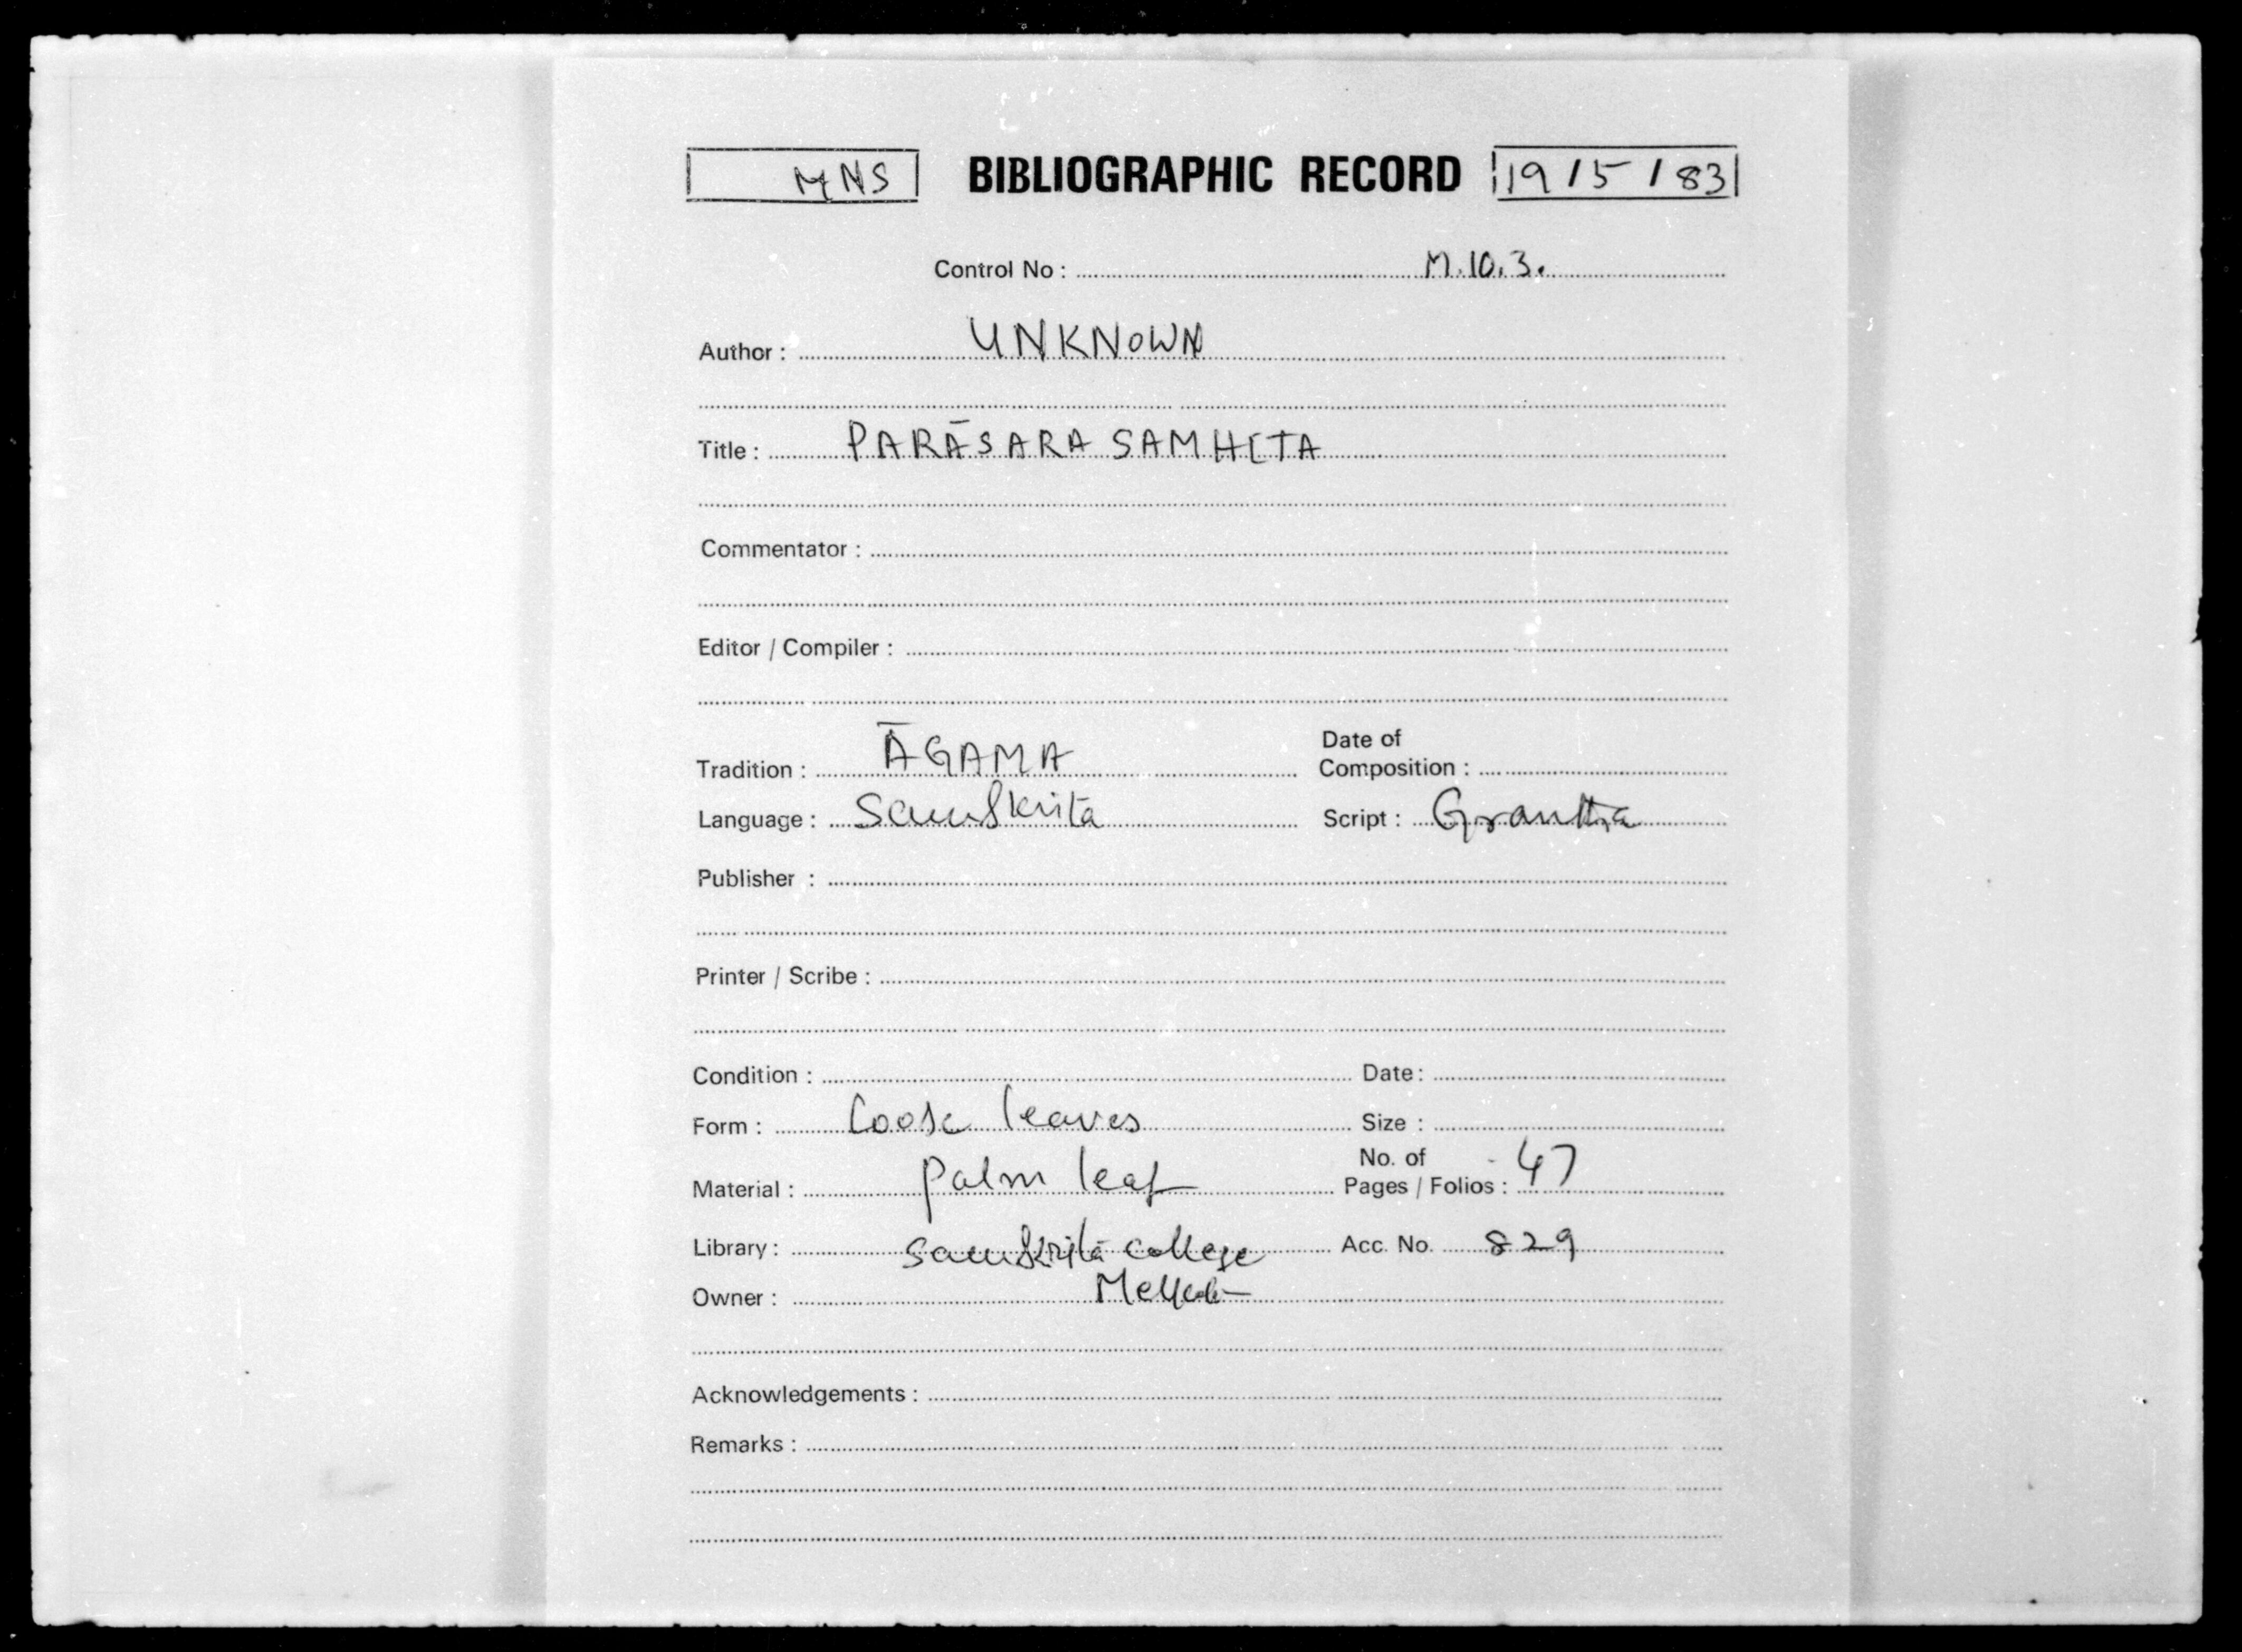 MNS BIBLIOGRAPHIC RECORD 19/5/83
Control No : M.10.3.
Author : UNKNOWN
Title : PARĀSARA SAMHITA
Commentator :
Editor / Compiler :
Tradition : ĀGAMA Date of Composition :
Language : Samskrita Script : Grantha
Publisher :
Printer / Scribe :
Condition : Date :
Form : Loose leaves Size :
Material : Palm leaf No. of Pages / Folios : 47
Library : Samskrita College Acc. No. 829
Owner : Melkote
Acknowledgements :
Remarks :